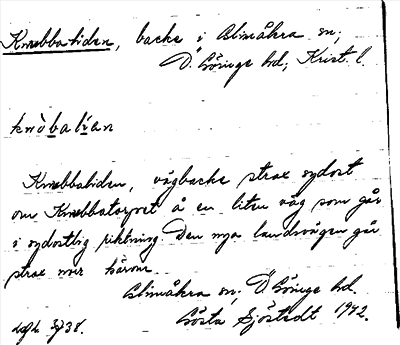 Knubbaliden, backe i Glimåkra sn,
Ö. Göinge hd, Krist. l.
knòbalían
Knubbaliden, vägbacke strax sydost
om Knubbatorpet å en liten väg som går
i sydostlig riktning. Den nya landsvägen går
strax norr härom.
Glimåkra sn, Ö. Göinge hd.
Gösta Sjöstedt 1942.